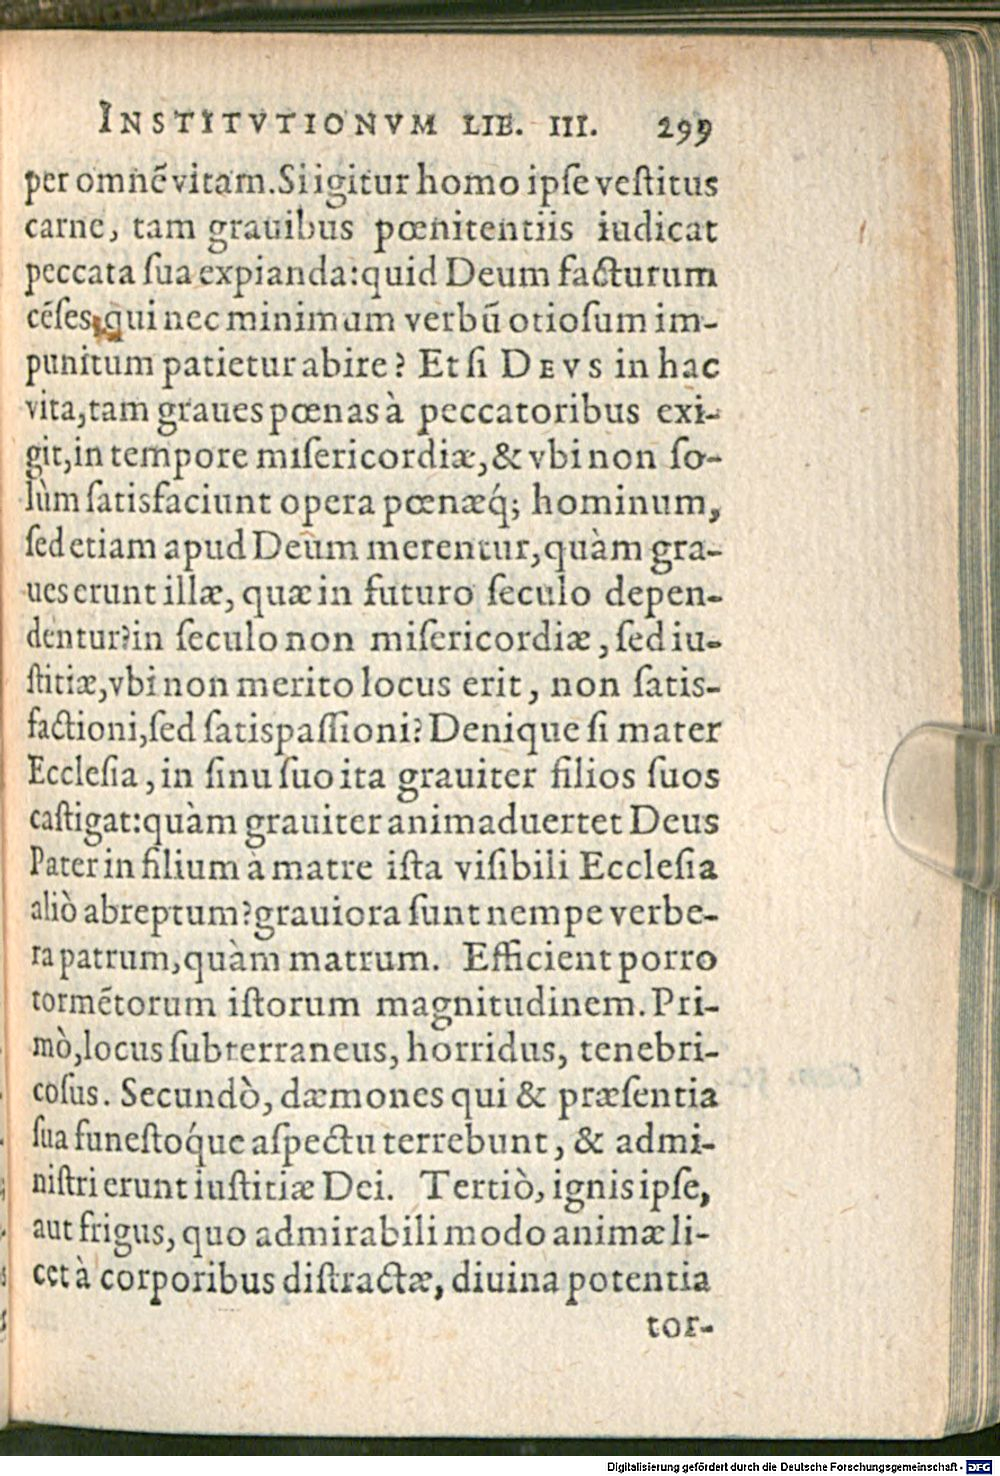 INSTITVTIONVM LIB. III. 299
per omnē vitam. Si igitur homo ipſe veſtitus
carne, tam grauibus pœnitentiis iudicat
peccata ſua expianda: quid Deum facturum
cēſes, qui nec minimum verbū otioſum im-
punitum patietur abire? Et ſi DEVS in hac
vita, tam graues pœnas à peccatoribus exi-
git, in tempore miſericordiæ, & vbi non ſo-
lùm ſatisfaciunt opera pœnæq́; hominum,
ſed etiam apud Deum merentur, quàm gra-
ues erunt illæ, quæ in futuro ſeculo depen-
dentur? in ſeculo non miſericordiæ, ſed iu-
ſtitiæ, vbi non merito locus erit, non ſatis-
factioni, ſed ſatispaſſioni? Denique ſi mater
Eccleſia, in ſinu ſuo ita grauiter filios ſuos
caſtigat: quàm grauiter animaduertet Deus
Pater in filium à matre iſta viſibili Eccleſia
aliò abreptum? grauiora ſunt nempe verbe-
ra patrum, quàm matrum. Efficient porro
tormētorum iſtorum magnitudinem. Pri-
mò, locus ſubterraneus, horridus, tenebri-
coſus. Secundò, dæmones qui & præſentia
ſua funeſtoq́ue aſpectu terrebunt, & admi-
niſtri erunt iuſtitiæ Dei. Tertiò, ignis ipſe,
aut frigus, quo admirabili modo animæ li-
cet à corporibus diſtractæ, diuina potentia
tor-
Digitalisierung gefördert durch die Deutsche Forschungsgemeinschaft - DFG